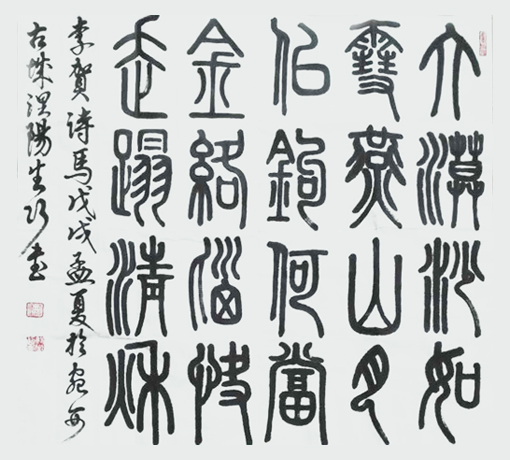 大漠沙如
雪燕山月
似鉤何當
金絡腦快
走蹋清秋
李賀詩馬戊戌孟夏於
古城 陽生 書